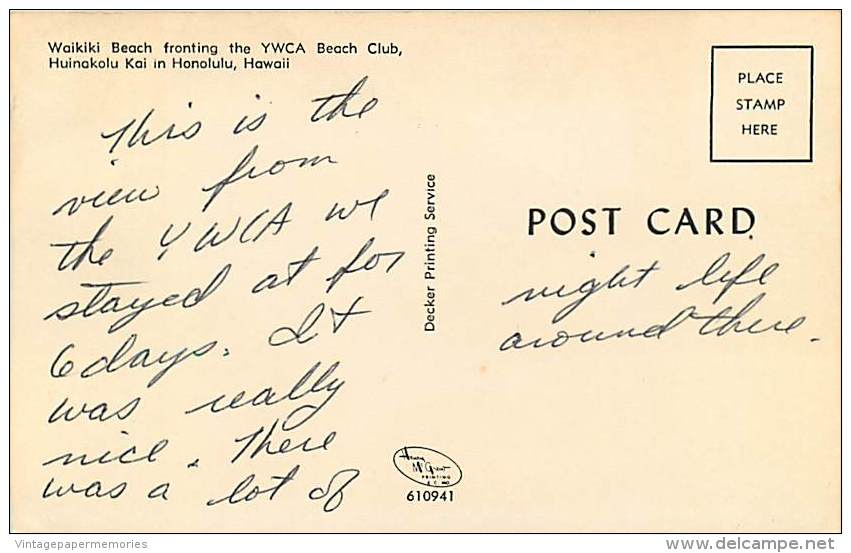 Waikiki Beach fronting the YWCA Beach Club,
Huinakolu Kai in Honolulu, Hawaii
This is the
view from
the YWCA we
stayed at for
6 days. It
was really
nice. There
was a lot of
Decker Printing Service
Henry
McGrew
PRINTING
610941
PLACE
STAMP
HERE
POST CARD
night life
around there.
Vintagepapermemories
delcampe.net